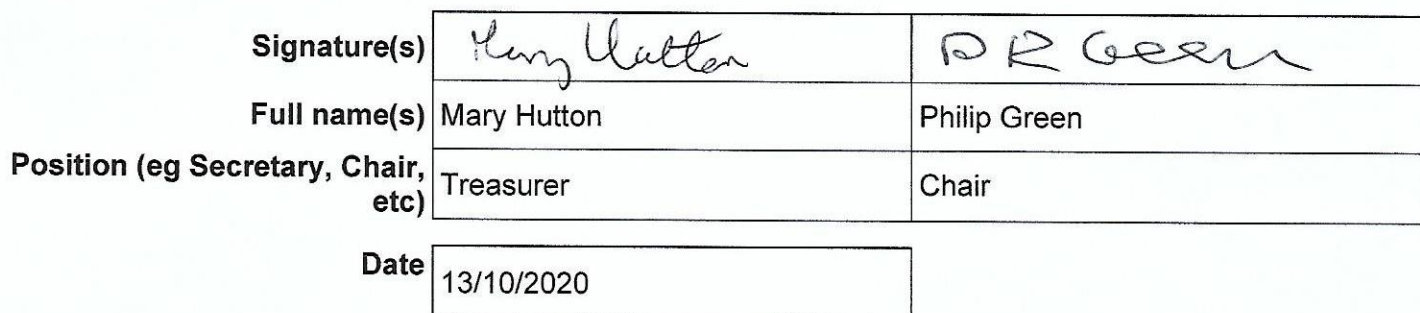 Signature(s) Mary Hutton P R Green
Full name(s) Mary Hutton Philip Green
Position (eg Secretary, Chair,
etc) Treasurer Chair
Date 13/10/2020